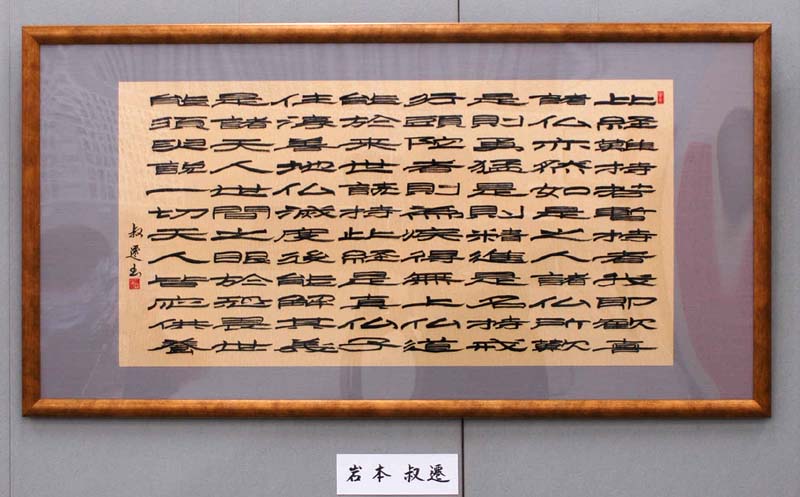 此経難持若暫持者我即歓喜
諸仏亦然如是之人諸仏所歎
是則勇猛是則精進是名持戒
行頭陀者則為疾得無上仏道
能於来世読持此経是真仏子
住淳善地仏滅度後能解其義
是諸天人世間之眼於恐畏世
能須臾説一切天人皆応供養
叔遷書
岩本 叔遷